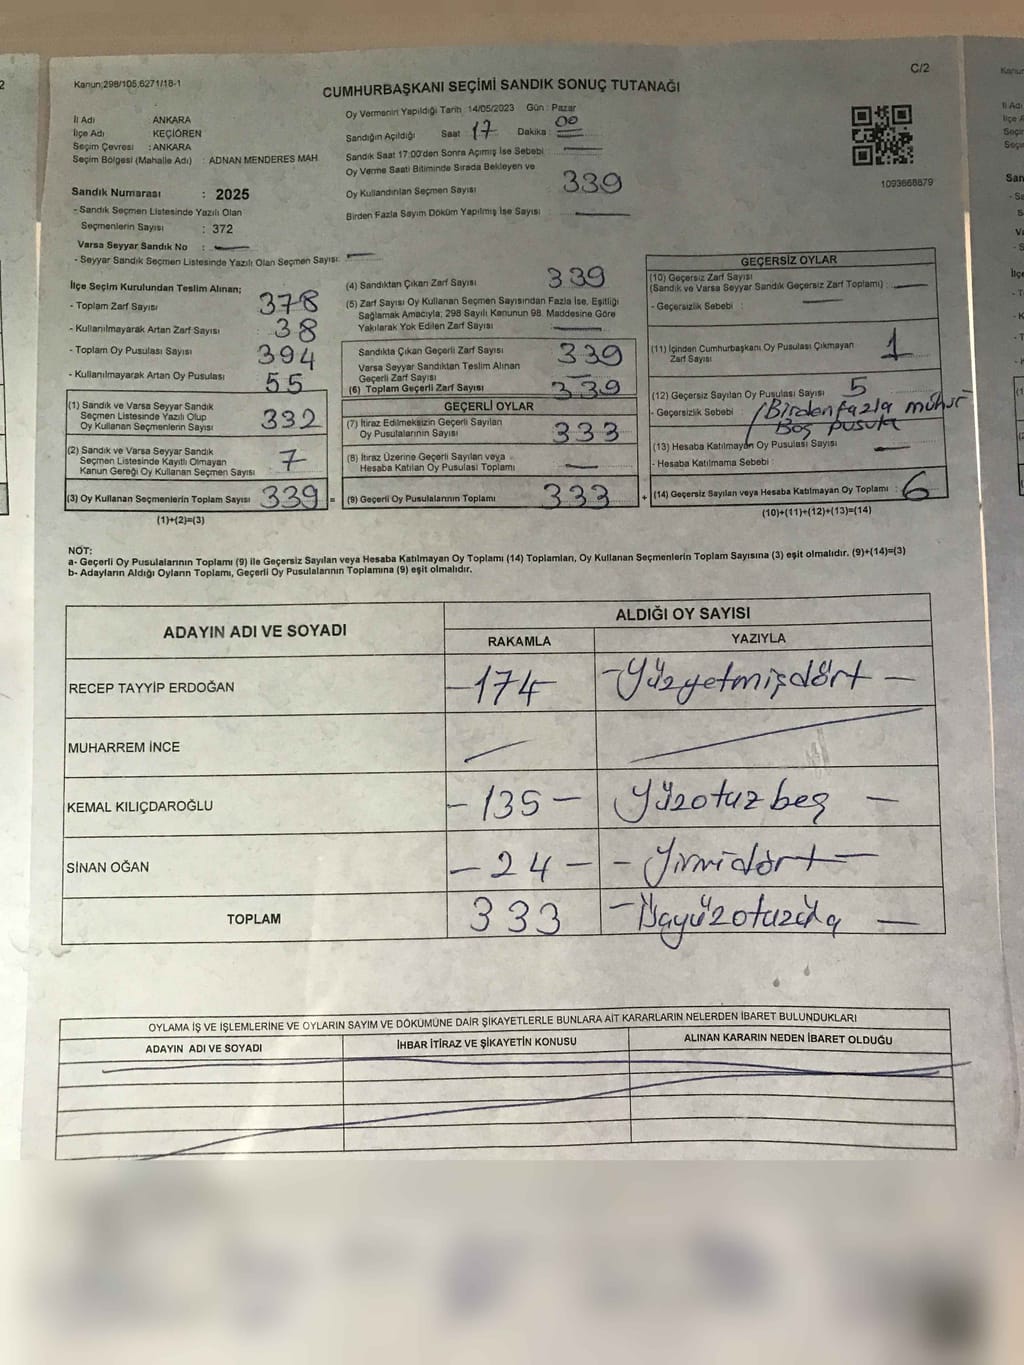 Kanun:298/105,6271/18-1
C/2
CUMHURBAŞKANI SEÇİMİ SANDIK SONUÇ TUTANAĞI
İl Adı : ANKARA
İlçe Adı : KEÇİÖREN
Seçim Çevresi : ANKARA
Seçim Bölgesi (Mahalle Adı) : ADNAN MENDERES MAH
Sandık Numarası : 2025
- Sandık Seçmen Listesinde Yazılı Olan
Seçmenlerin Sayısı : 372
Varsa Seyyar Sandık No : —
- Seyyar Sandık Seçmen Listesinde Yazılı Olan Seçmen Sayısı: —
Oy Vermenin Yapıldığı Tarih : 14/05/2023 Gün : Pazar
Sandığın Açıldığı Saat : 17 Dakika : 00
Sandık Saat 17:00'den Sonra Açımış İse Sebebi : —
Oy Verme Saati Bitiminde Sırada Bekleyen ve
Oy Kullandırılan Seçmen Sayısı : 339
Birden Fazla Sayım Döküm Yapılmış İse Sayısı : —
1093668679
İlçe Seçim Kurulundan Teslim Alınan;
- Toplam Zarf Sayısı : 378
- Kullanılmayarak Artan Zarf Sayısı : 38
- Toplam Oy Pusulası Sayısı : 394
- Kullanılmayarak Artan Oy Pusulası : 55
(1) Sandık ve Varsa Seyyar Sandık
Seçmen Listesinde Yazılı Olup
Oy Kullanan Seçmenlerin Sayısı : 332
(2) Sandık ve Varsa Seyyar Sandık
Seçmen Listesinde Kayıtlı Olmayan
Kanun Gereği Oy Kullanan Seçmen Sayısı : 7
(3) Oy Kullanan Seçmenlerin Toplam Sayısı : 339 =
(1)+(2)=(3)
(4) Sandıktan Çıkan Zarf Sayısı : 339
(5) Zarf Sayısı Oy Kullanan Seçmen Sayısından Fazla İse, Eşitliği
Sağlamak Amacıyla; 298 Sayılı Kanunun 98. Maddesine Göre
Yakılarak Yok Edilen Zarf Sayısı : —
Sandıkta Çıkan Geçerli Zarf Sayısı : 339
Varsa Seyyar Sandıktan Teslim Alınan
Geçerli Zarf Sayısı : —
(6) Toplam Geçerli Zarf Sayısı : 339
GEÇERLİ OYLAR
(7) İtiraz Edilmeksizin Geçerli Sayılan
Oy Pusulalarının Sayısı : 333
(8) İtiraz Üzerine Geçerli Sayılan veya
Hesaba Katılan Oy Pusulası Toplamı : —
(9) Geçerli Oy Pusulalarının Toplamı : 333 +
GEÇERSİZ OYLAR
(10) Geçersiz Zarf Sayısı
(Sandık ve Varsa Seyyar Sandık Geçersiz Zarf Toplamı) : —
- Geçersizlik Sebebi : —
(11) İçinden Cumhurbaşkanı Oy Pusulası Çıkmayan
Zarf Sayısı : 1
(12) Geçersiz Sayılan Oy Pusulası Sayısı : 5
- Geçersizlik Sebebi : Birden fazla mühür
Boş pusula
(13) Hesaba Katılmayan Oy Pusulası Sayısı : —
- Hesaba Katılmama Sebebi :
(14) Geçersiz Sayılan veya Hesaba Katılmayan Oy Toplamı : 6
(10)+(11)+(12)+(13)=(14)
NOT:
a- Geçerli Oy Pusulalarının Toplamı (9) ile Geçersiz Sayılan veya Hesaba Katılmayan Oy Toplamı (14) Toplamları, Oy Kullanan Seçmenlerin Toplam Sayısına (3) eşit olmalıdır. (9)+(14)=(3)
b- Adayların Aldığı Oyların Toplamı, Geçerli Oy Pusulalarının Toplamına (9) eşit olmalıdır.
ADAYIN ADI VE SOYADI
ALDIĞI OY SAYISI
RAKAMLA YAZIYLA
RECEP TAYYİP ERDOĞAN -174- -Yüzyetmişdört-
MUHARREM İNCE
KEMAL KILIÇDAROĞLU -135- Yüzotuzbeş -
SİNAN OĞAN -24- -Yirmidört-
TOPLAM 333
OYLAMA İŞ VE İŞLEMLERİNE VE OYLARIN SAYIM VE DÖKÜMÜNE DAİR ŞİKAYETLERLE BUNLARA AİT KARARLARIN NELERDEN İBARET BULUNDUKLARI
ADAYIN ADI VE SOYADI İHBAR İTİRAZ VE ŞİKAYETİN KONUSU ALINAN KARARIN NEDEN İBARET OLDUĞU